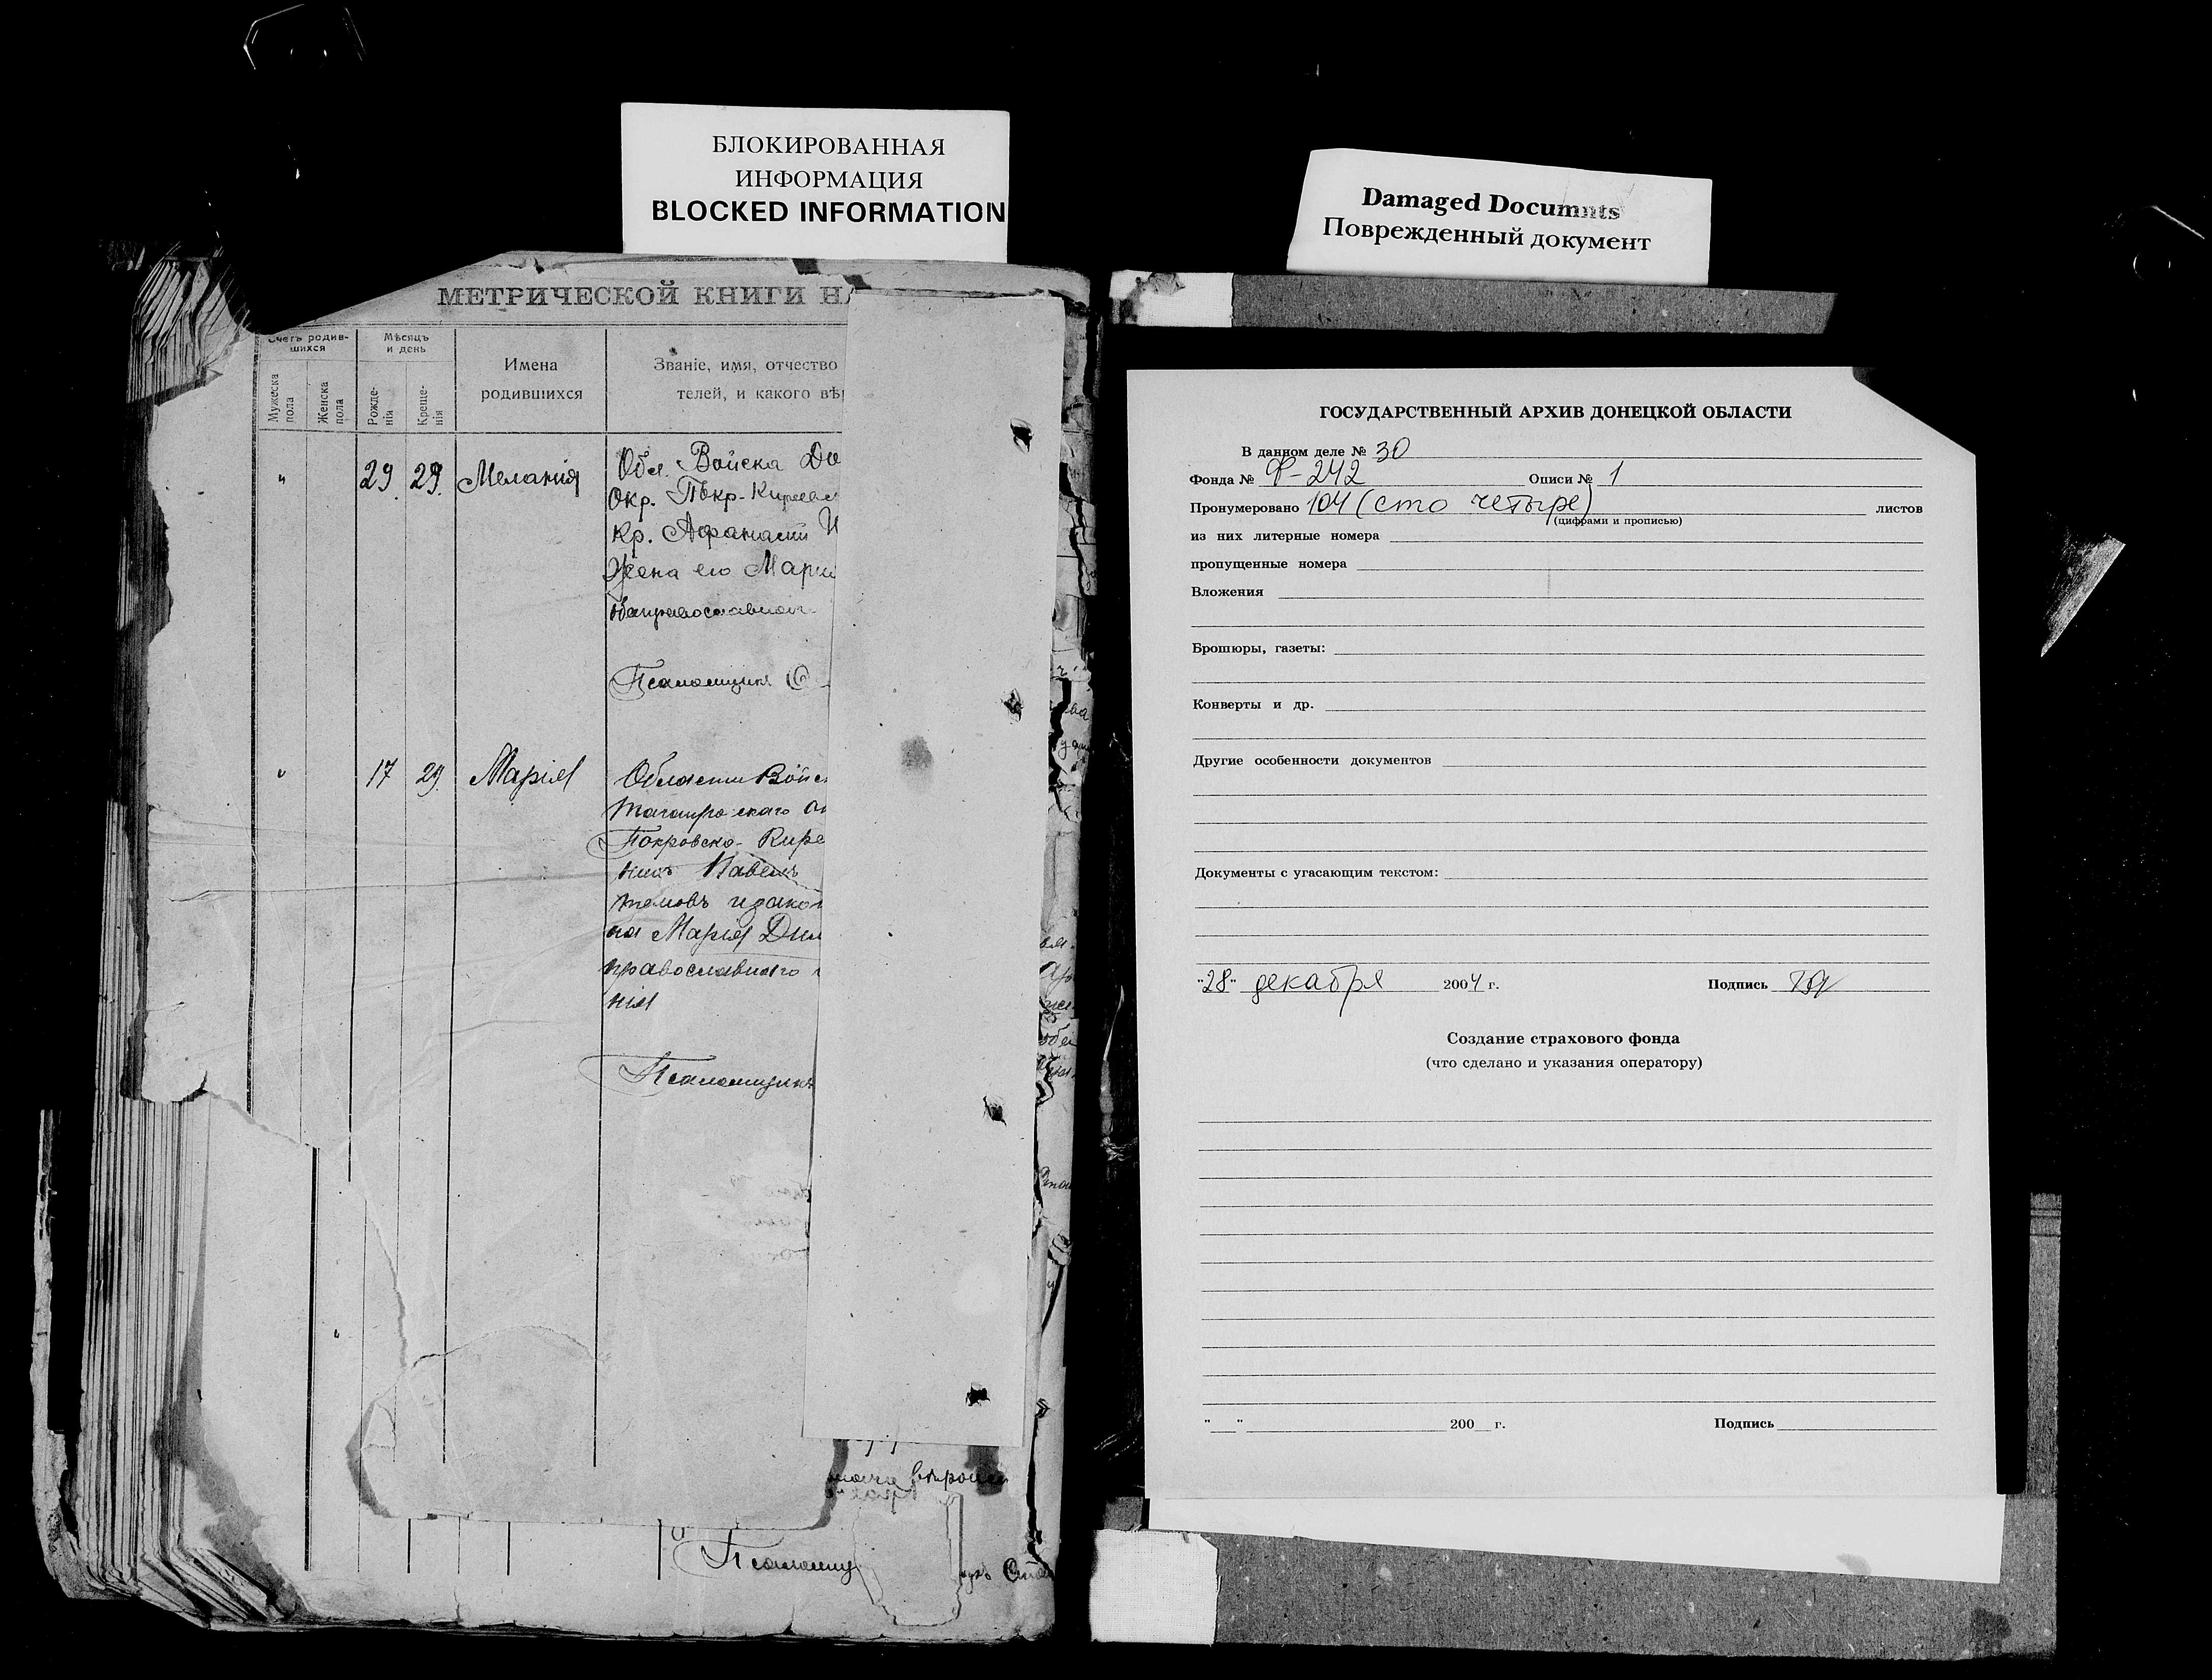 БЛОКИРОВАННАЯ
ИНФОРМАЦИЯ
BLOCKED INFORMATION
Damaged Documnts
Поврежденный документ
МЕТРИЧЕСКОЙ КНИГИ НА
Счетъ родив-
шихся
Мужеска
пола
Женска
пола
Мѣсяцъ
и день
Рожде-
нія
Креще-
нія
Имена
родившихся
Званіе, имя, отчество
телей, и какого вѣр
29. 29. Меланія
Обл. Войска До
Окр.
Кр. Афанасій И
Жена его Марі
Псаломщикъ С
17 29. Марія
Области Войс
Покровско-Кире
нинъ Павелъ
на Марія Дим
православнаго
нія
Псаломщикъ
Псаломщ
ГОСУДАРСТВЕННЫЙ АРХИВ ДОНЕЦКОЙ ОБЛАСТИ
В данном деле № 30
Фонда № Ф-242 Описи № 1
Пронумеровано 104 (сто четыре) листов
(цифрами и прописью)
из них литерные номера
пропущенные номера
Вложения
Брошюры, газеты:
Конверты и др.
Другие особенности документов
Документы с угасающим текстом:
"28" декабря 2004 г. Подпись
Создание страхового фонда
(что сделано и указания оператору)
"__" 200__ г. Подпись